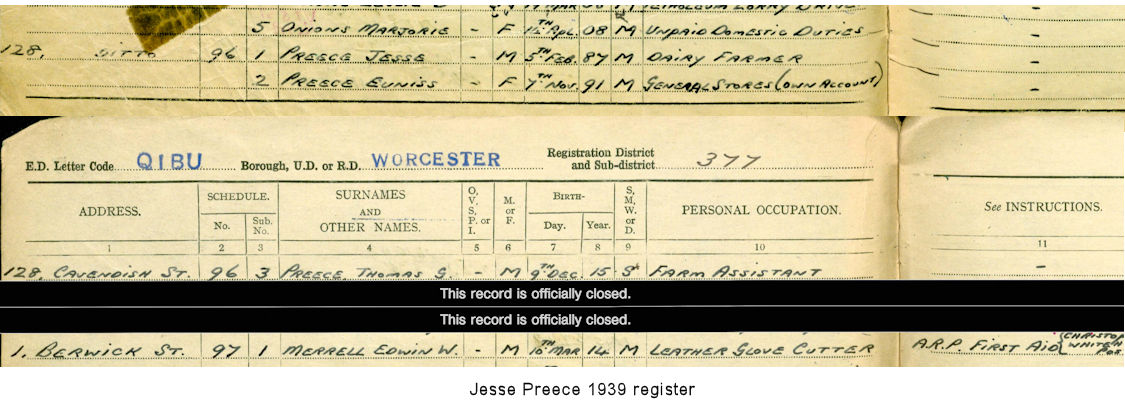 5 ONIONS MARJORIE - F 14TH APL. 08 M UNPAID DOMESTIC DUTIES -
128, DITTO 96 1 PREECE JESSE - M 5TH FEB. 87 M DAIRY FARMER -
2 PREECE EUNISS - F 7TH NOV. 91 M GENERAL STORES (OWN ACCOUNT) -
E.D. Letter Code QIBU Borough, U.D. or R.D. WORCESTER Registration District and Sub-district 377
ADDRESS. SCHEDULE. No. Sub. No. SURNAMES AND OTHER NAMES. O, V, S, P. or I. M. or F. BIRTH- Day. Year. S, M, W. or D. PERSONAL OCCUPATION. See INSTRUCTIONS.
1 2 3 4 5 6 7 8 9 10 11
128, CAVENDISH ST. 96 3 PREECE, THOMAS G. - M 9TH DEC. 15 S FARM ASSISTANT -
This record is officially closed.
This record is officially closed.
1, BERWICK ST. 97 1 MERRELL EDWIN W. - M 10TH MAR 14 M LEATHER GLOVE CUTTER A.R.P. FIRST AID
Jesse Preece 1939 register